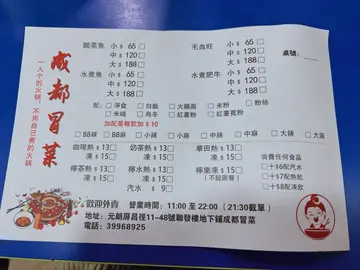 成都冒菜
一人个的火锅，不用自己煮的火锅
酸菜鱼 小$ 65 □
中$ 120 □
大$ 188 □
水煮鱼 小$ 65 □
中$ 120 □
大$ 188 □
毛血旺 小$ 65 □
中$ 120 □
大$ 188 □
水煮肥牛 小$ 65 □
中$ 120 □
大$ 188 □
桌號:
配: □ 淨食 □ 白飯 □ 火鍋面 □ 米粉 □ 粉絲
□ 米线 □ 乌冬 □ 紅薯粉 □ 紅薯寬粉
加配菜每款加 $ 10
□ BB辣 □ BB麻 □ 小辣 □ 小麻 □ 中辣 □ 中麻 □ 大辣 □ 大麻
咖啡熱 $ 13 □ 奶茶熱 $ 13 □ 華田熱 $ 13 □
凍 $ 15 □ 凍 $ 15 □ 凍 $ 15 □
檸茶熱 $ 13 □ 檸水熱 $ 13 □ 檸樂凍 $ 15 □
凍 $ 15 □ 凍 $ 15 □
汽水 $ 9 □
消费任何食品
□ +$6配汽水
□ +$7配熱飲
□ +$8配凍飲
歡迎外賣 營業時間: 11:00 至 22:00 (21:30截單)
地址: 元朗屏昌徑11-48號聯發樓地下鋪成都冒菜
電話: 39968925